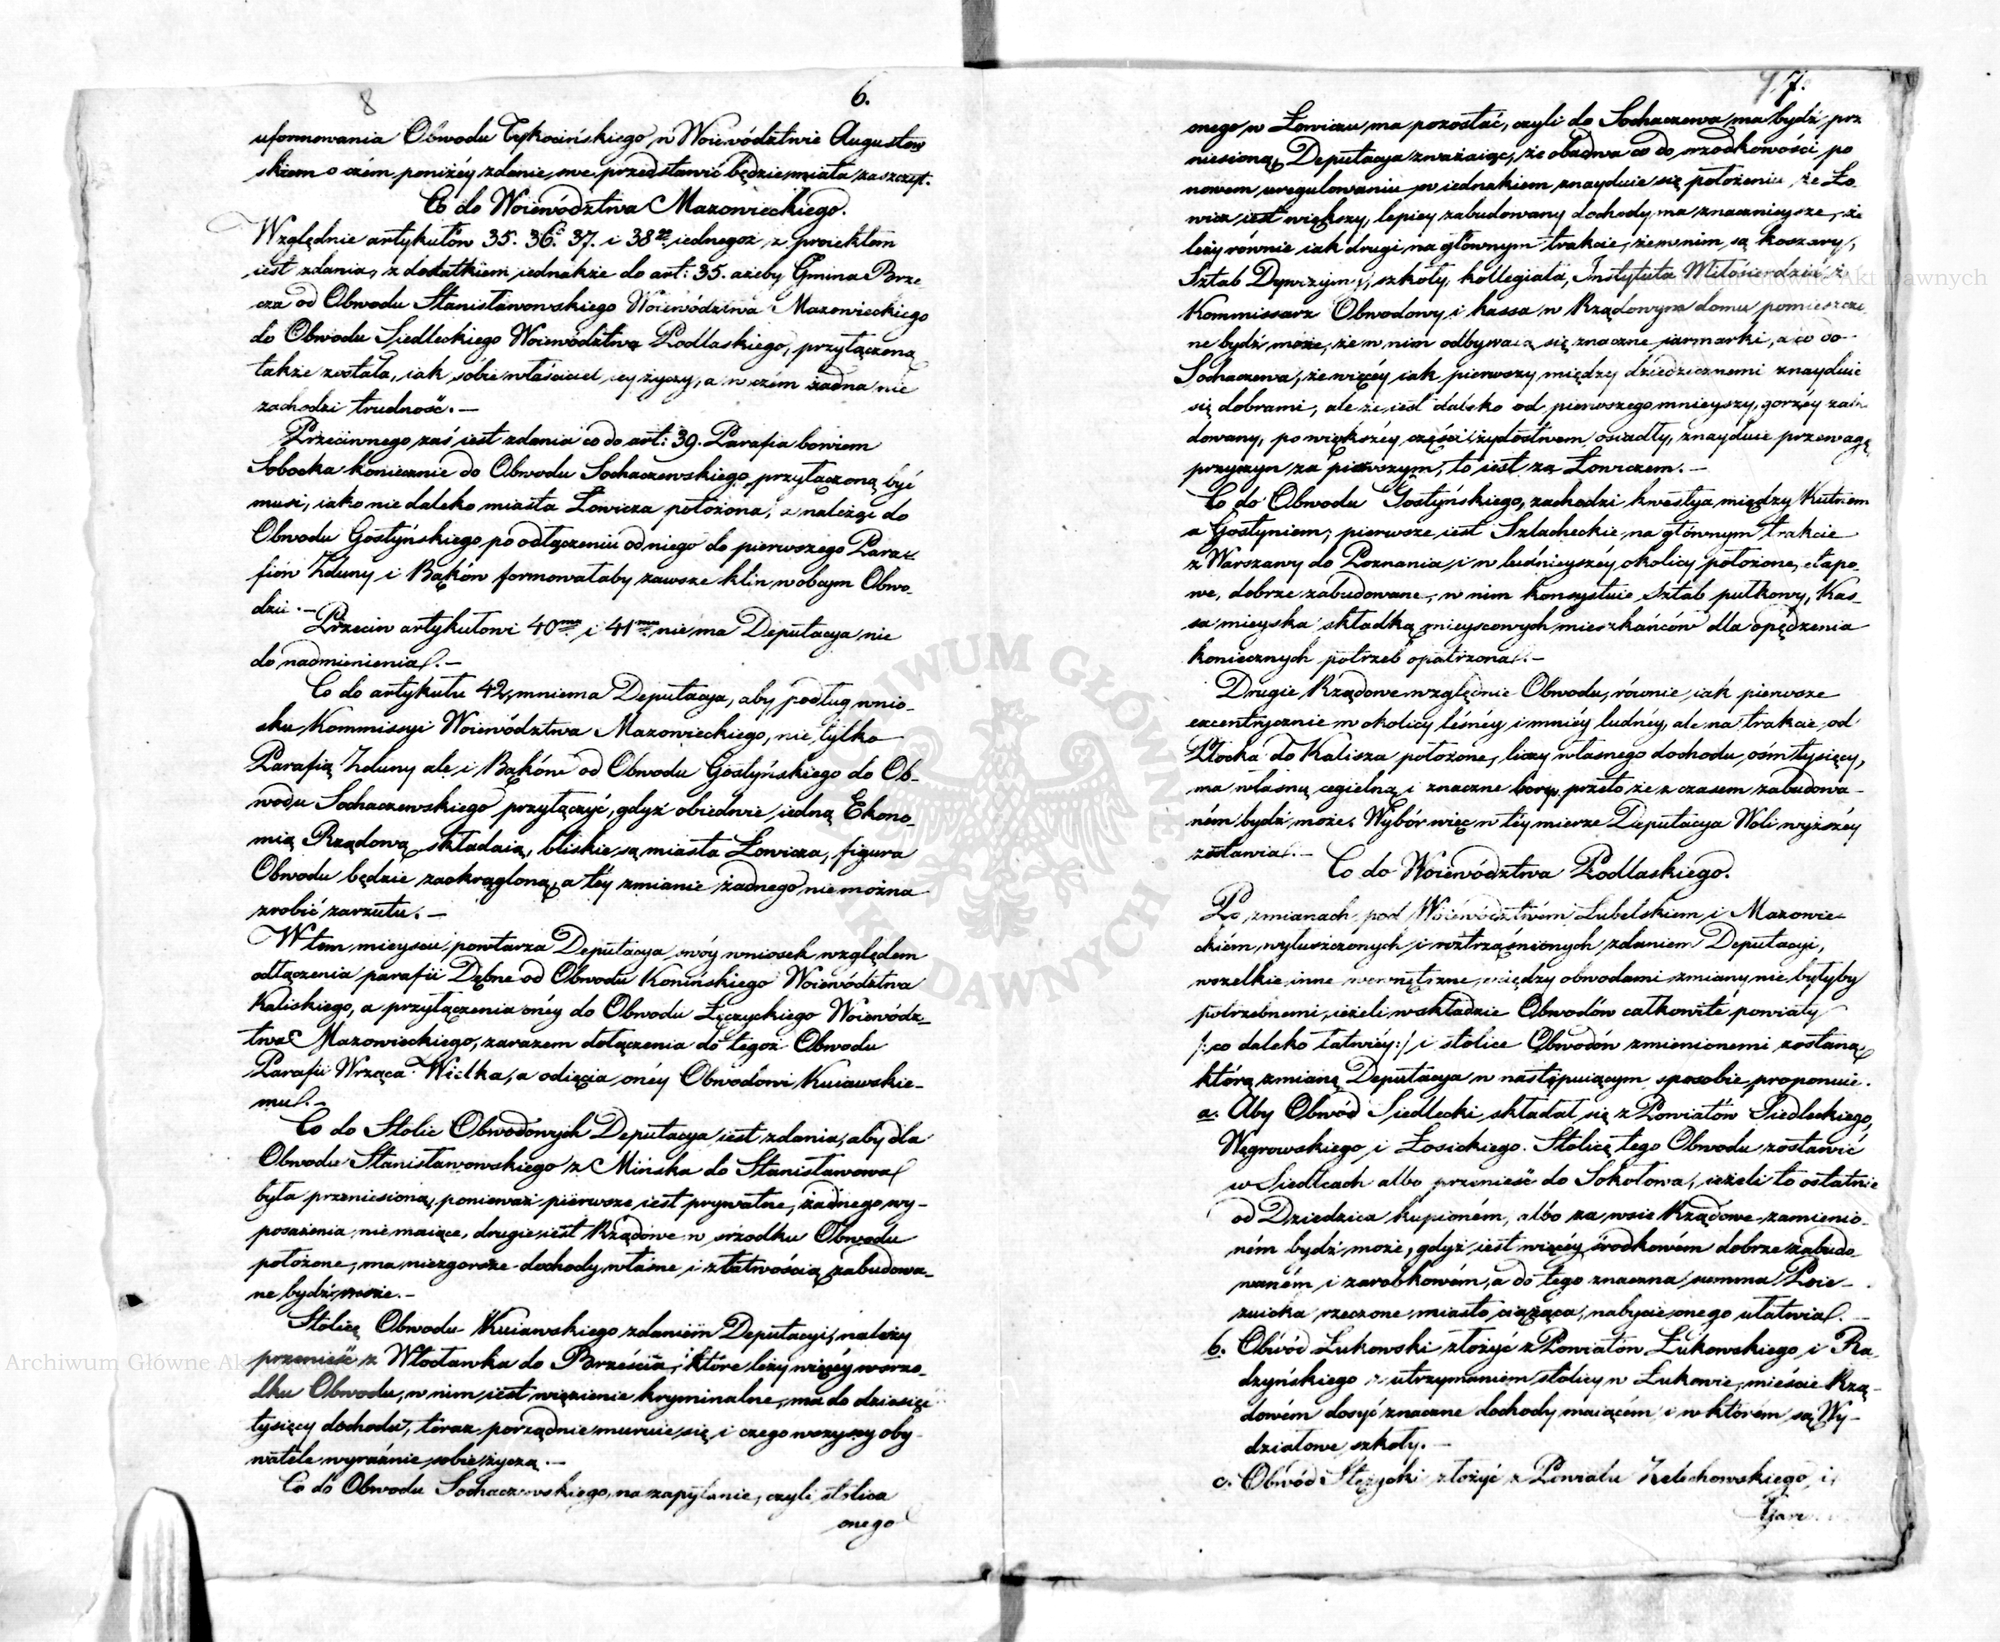 8
6.
uformowania Obwodu Tykocińskiego w Woiewództwie Augustow
skiem o czém poniżéy zdanie swe przedstawić będzie miała zaszczyt.
Co do Woiewództwa Mazowieckiego.
Względnie artykułów 35. 36. 37. i 38 iednegoż z proiektem
iest zdania, z dodatkiem iednakże do art: 35. ażeby Gmina Brze-
cza od Obwodu Stanisławowskiego Woiewództwa Mazowieckiego
do Obwodu Siedleckiego Woiewództwa Podlaskiego, przyłączoną
także została, iak sobie właściciel iey życzy, a w czém żadna nie
zachodzi trudność. —
Przeciwnego zaś iest zdania co do art: 39. Parafia bowiem
Sobocka koniecznie do Obwodu Sochaczewskiego przyłączoną być
musi, iako nie daleko miasta Łowicza położona, a należąc do
Obwodu Gostyńskiego po odłączeniu od niego do pierwszego Para-
fiów Zduny i Bąków formowałaby zawsze klin w obcym Obwo-
dzie. —
Przeciw artykułowi 40mu i 41mu nie ma Deputacya nic
do nadmienienia. —
Co do artykułu 42, mniema Deputacya, aby podług wnio-
sku Kommissyi Woiewództwa Mazowieckiego, nie tylko
Parafią Zduny ale i Bąków od Obwodu Gostyńskiego do Ob-
wodu Sochaczewskiego przyłączyć, gdyż obiedwie iedną Ekono-
mią Rządową składaią, bliskie są miasta Łowicza, figura
Obwodu będzie zaokrągloną, a téy zmianie żadnego nie można
zrobić zarzutu. —
W tem mieyscu powtarza Deputacya swóy wniosek względem
odłączenia parafii Dębne od Obwodu Konińskiego Woiewództwa
Kaliskiego, a przyłączenia onéy do Obwodu Łęczyckiego Woiewódz-
twa Mazowieckiego, zarazem dołączenia do tegoż Obwodu
Parafii Wrząca Wielka, a odięcia onéy Obwodowi Kuiawskie-
mu. —
Co do Stolic Obwodowych Deputacya iest zdania, aby dla
Obwodu Stanisławowskiego z Mińska do Stanisławowa
była przeniesioną, ponieważ pierwsze iest prywatne, żadnego wy-
posażenia nie maiące, drugie iest Rządowe w śrzodku Obwodu
położone, ma niezgorsze dochody własne i z łatwością zabudowa-
ne bydź może. —
Stolicę Obwodu Kuiawskiego zdaniem Deputacyi, należy
przenieść z Włocławka do Brześcia, które leży więcéy w śrzo-
dku Obwodu, w nim iest więzienie kryminalne, ma do dziesięć
tysięcy dochodu, teraz porządnie muruie się i czego wszyscy oby-
watele wyraźnie sobie życzą. —
Co do Obwodu Sochaczewskiego, na zapytanie, czyli stolica
onego
7.
onego w Łowiczu ma pozostać, czyli do Sochaczewa ma bydź prz
niesioną, Deputacya zważaiąc, że obadwa co do śrzodkowości po
nowem uregulowaniu w iednakiem znayduie się położeniu, że Ło-
wicz iest większy, lepiey zabudowany dochody ma znacznieysze, że
leży równie iak drugi na głównym trakcie, że w nim są koszary,
Sztab Dywizyiny, szkoły, kollegiata, Instytuta Miłosierdzia, że
Kommissarz Obwodowy i kassa w Rządowym domu pomieszczo
ne bydź może, że w nim odbywaią się znaczne jarmarki, a co do
Sochaczewa, że więcéy iak pierwszy między dziedzicznemi znayduie
się dobrami, ale że iest daleko od pierwszego mnieyszy, gorzéy zabu
dowany, po większéy części żydostwem osiadły, znayduie przewagę
przyczyn za pierwszym, to iest za Łowiczem. —
Co do Obwodu Gostyńskiego, zachodzi kwestya między Kutnem
a Gostyniem; pierwsze iest Szlacheckie, na głównym trakcie
z Warszawy do Poznania i w ludnieyszéy okolicy położone, etapo-
we, dobrze zabudowane, w nim konsystuie sztab pułkowy, Kas-
sa mieyska składką mieyscowych mieszkańców dla opędzenia
koniecznych potrzeb opatrzona. —
Drugie Rządowe względnie Obwodu, równie iak pierwsze
excentrycznie w okolicy leśnéy i mniéy ludnéy, ale na trakcie od
Płocka do Kalisza położone, liczy własnego dochodu ośm tysięcy,
ma własną cegielnią i znaczne bory, przeto że z czasem zabudowa-
ném bydź może. Wybór więc w téy mierze Deputacya Woli wyższéy
zostawia. —
Co do Woiewództwa Podlaskiego.
Po zmianach pod Woiewództwem Lubelskiem i Mazowie-
ckiem, wyłuszczonych i roztrząśnionych zdaniem Deputacyi,
wszelkie inne wewnętrzne między obwodami zmiany nie byłyby
potrzebnemi, ieżeli w składzie Obwodów całkowite powiaty
/:co daleko łatwiéy:/ i stolice Obwodów zmienionemi zostaną
którą zmianę Deputacya w następuiącym sposobie proponuie.
a. Aby Obwód Siedlecki składał się z Powiatów Siedleckiego,
Węgrowskiego i Łosickiego. Stolicę tego Obwodu zostawić
w Siedlcach albo przenieść do Sokołowa, ieżeli to ostatnie
od Dziedzica kupioném, albo za wsie Rządowe zamienio-
ném bydź może, gdyż iest więcéy środkowém dobrze zabudo
waném i zarobkowém, a do tego znaczna summa Poie-
zuicka rzeczone miasto ciążąca, nabycie onego ułatwia. —
b. Obwód Łukowski złożyć z Powiatów Łukowskiego i Ra-
dzyńskiego z utrzymaniem stolicy w Łukowie, mieście Rzą-
dowém dosyć znaczne dochody maiącém i w którém są Wy-
działowe szkoły. —
c. Obwód Stężycki złożyć z Powiatu Żelechowskiego i
Garw